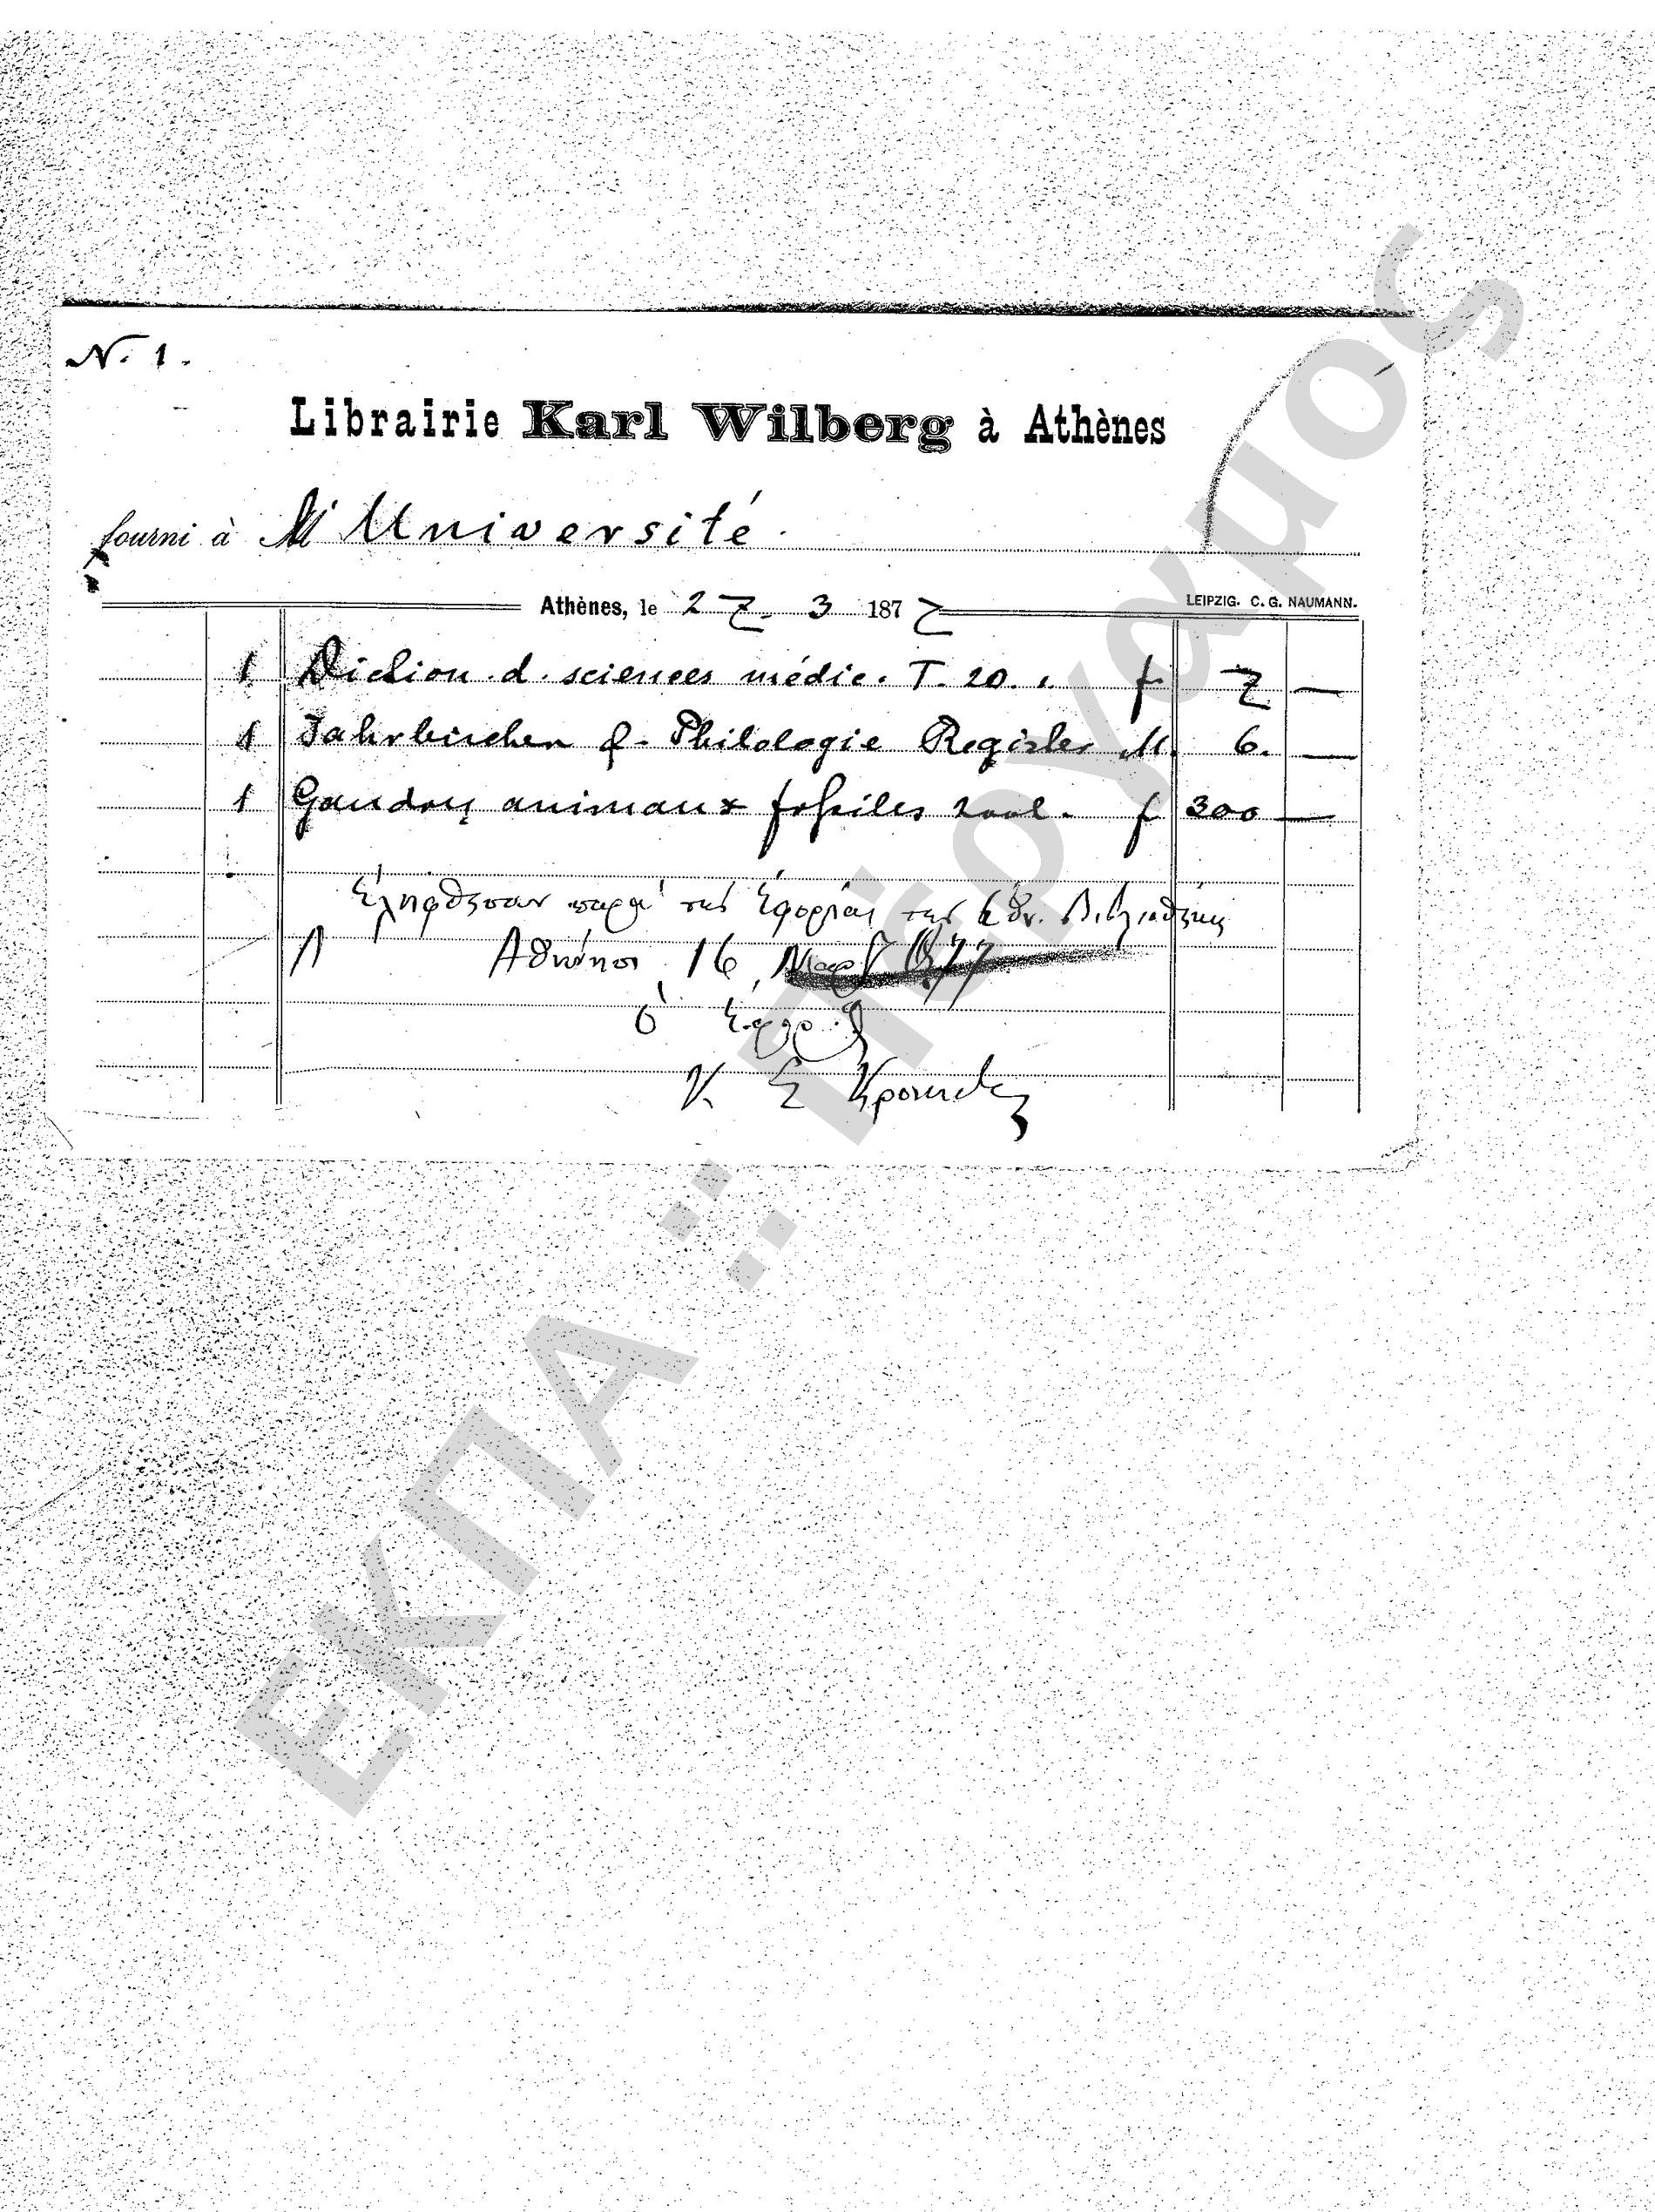 N. 1.
Librairie Karl Wilberg à Athènes
fourni à M Université.
Athènes, le 27. 3 1877
LEIPZIG. C. G. NAUMANN.
1 Diction. d. sciences médic. T. 20. f. 7 —
1 Jahrbücher f. Philologie Register M. 6. —
1 Gaudry animaux fossiles f 300 —
Ἐλήφθησαν παρὰ τῆς Ἐφορείας τῆς Ἐθν. Βιβλιοθήκης
Ἀθήνησι 16 Μαρτ 1877
ὁ Ἔφορος
ΕΚΠΑ :: Πέργαμος